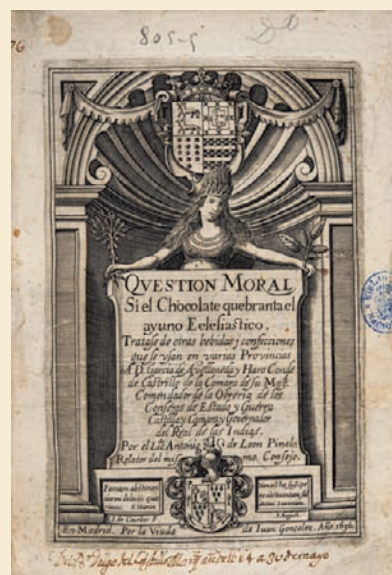 805-5
QVESTION MORAL
Si el Chocolate quebranta el
ayuno Eclesiastico.
Tratase de otras bebidas y confecciones
que se vsan en varias Provincias
A D. Garcia de Avellaneda y Haro Conde
de Castrillo de la Camara de su Mag.
Comendador de la Obreria de los
Consejos de Estado y Guerra
Castilla y Camara y Governador
del Real de las Indias.
Por el Lic. Antonio de Leon Pinelo
Relator del mismo Consejo.
I. de Courbes F.
En Madrid. Por la Viuda de Iuan Gonçalez. Año 1636.